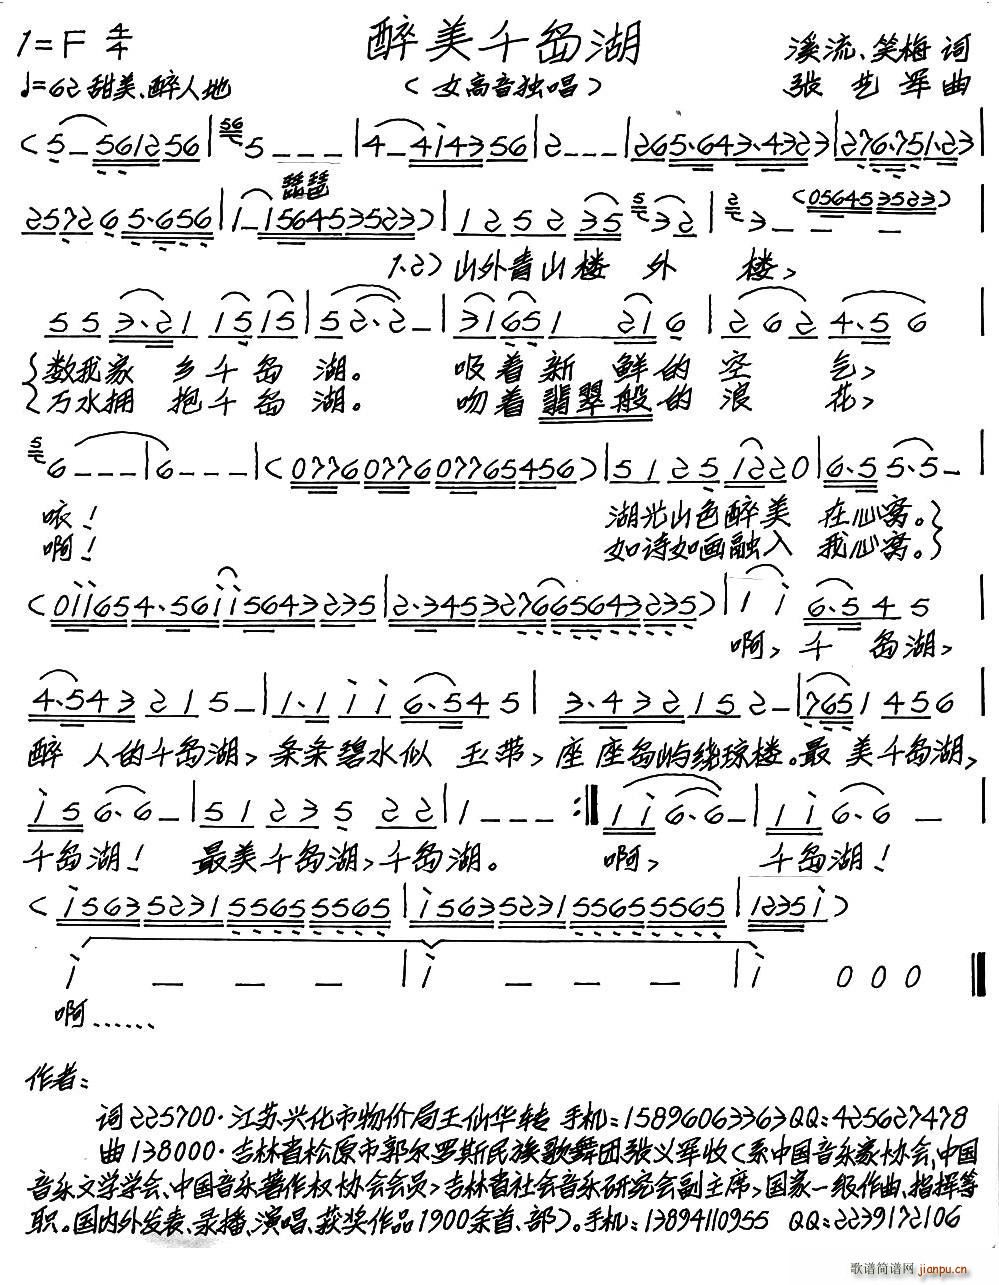 醉美千岛湖
1=F 4/4
溪流、笑梅 词
♩=62 甜美、醉人地
(女高音独唱)
张艺军 曲
(5-561256|56 5---|4-4i4356|2---|265·643·4323|276·751·23|
257265·656|1-15645353523)|1252 35 5 32|2 3---(0564535 23)|
琵琶
1.2)山外青山楼 外 楼,
553·21 1515|52·2-|31651 216|262 4·56
数我家 乡千岛 湖。 吸着新 鲜的空 气,
万水拥 抱千岛 湖。 吻着翡翠般的浪 花,
5 6---|6---|(0776077607765456)|5125 1220|6·55·5-|
咳! 湖光山色醉美 在心窝。
啊! 如诗如画融入 我心窝。
(0ii654·56ii5643235|2·34532766564 3235)|1i 6·545
啊,千 岛湖,
4·543 215-|1·1ii 6·545|3·432 2152-|7651 456
醉 人的千岛湖,条条碧水似 玉带,座座岛屿绕琼楼。最 美千岛湖,
i56·6-|51235 22|1---:‖1i6·6-|1i6·6-|
千岛湖! 最美千岛湖,千岛湖。 啊, 千岛湖!
(i563523155655565|i563523155655565|1235i)
i---|i---|i000‖
啊……
作者:
词225700·江苏、兴化市物价局王仙华转 手机:15896063363QQ:425627478
曲138000·吉林省松原市郭尔罗斯民族歌舞团张义军收(系中国音乐家协会,中国
音乐文学学会、中国音乐著作权协会会员,吉林省社会音乐研究会副主席,国家一级作曲、指挥等
职。国内外发表、录播、演唱、获奖作品1900余首、部)。手机:13894110955 QQ:2239172106
歌谱简谱网
jianpu.cn